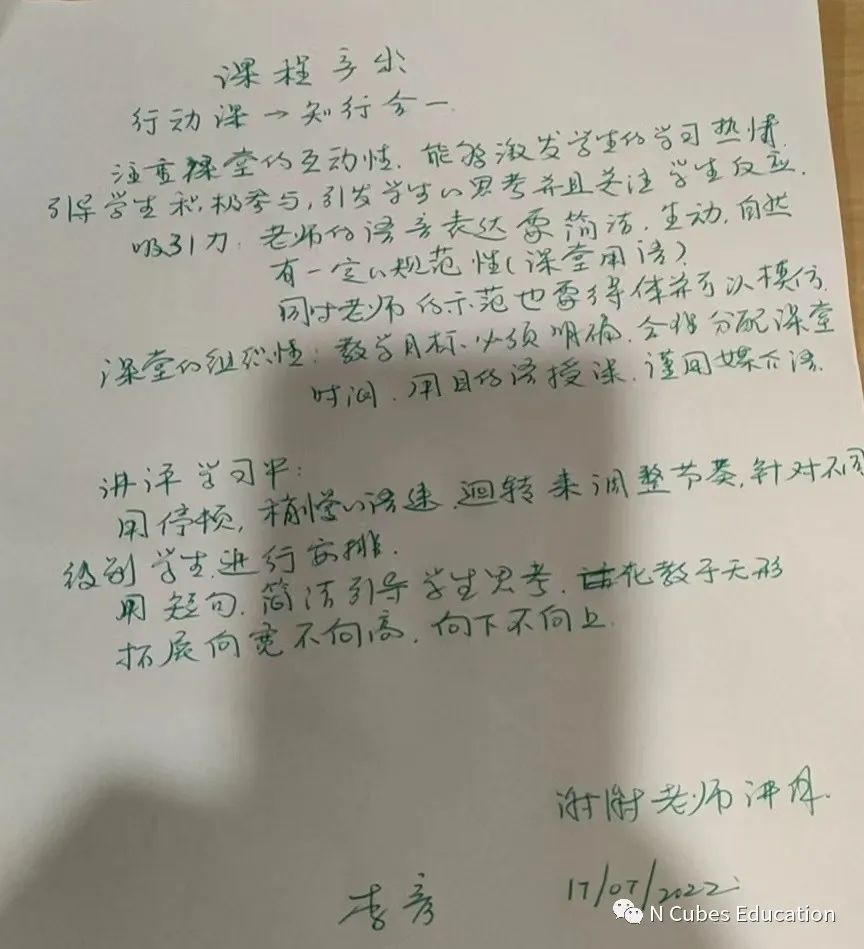 课程产出
行动课→知行合一
注重课堂的互动性. 能够激发学生的学习热情.
引导学生积极参与,引发学生的思考并且关注学生反应.
吸引力: 老师的语言表达要简洁. 生动. 自然
有一定的规范性(课堂用语)
同时老师的示范也要得体并可以模仿.
课堂的组织性: 教学目标必须明确. 合理分配课堂
时间. 用目的语授课. 谨用媒介语.
讲评学习中:
用停顿, 稍慢的语速.迴转来调整节奏,针对不同
级别学生进行安排.
用短句. 简洁引导学生思考. 化教于无形
拓展向宽不向高. 向下不向上.
谢谢老师讲解.
李彦
17/07/2022
N Cubes Education